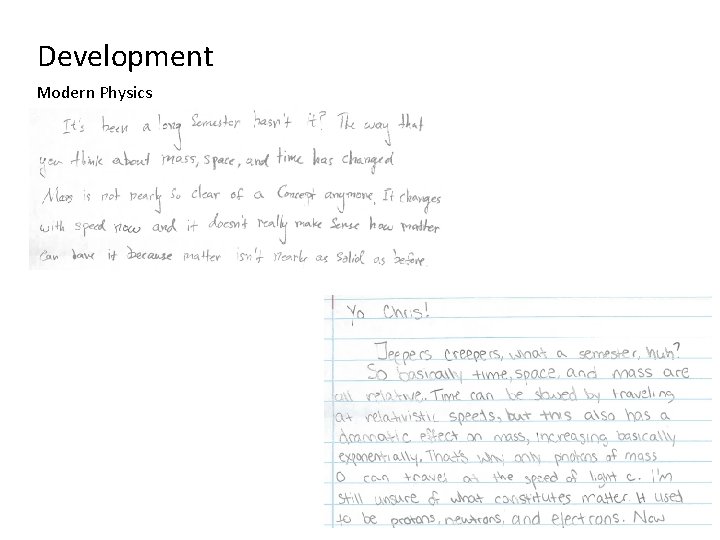 Development
Modern Physics
It's been a long semester hasn't it? The way that
you think about mass, space, and time has changed
Mass is not nearly so clear of a concept anymore. It changes
with speed now and it doesn't really make sense how matter
can have it because matter isn't nearly as solid as before.
Yo Chris!
Jeepers creepers, what a semester, huh?
So basically time, space, and mass are
all relative. Time can be slowed by traveling
at relativistic speeds, but this also has a
dramatic effect on mass, increasing basically
exponentially. That's why only photons of mass
0 can travel at the speed of light c. I'm
still unsure of what constitutes matter. It used
to be protons, neutrons, and electrons. Now